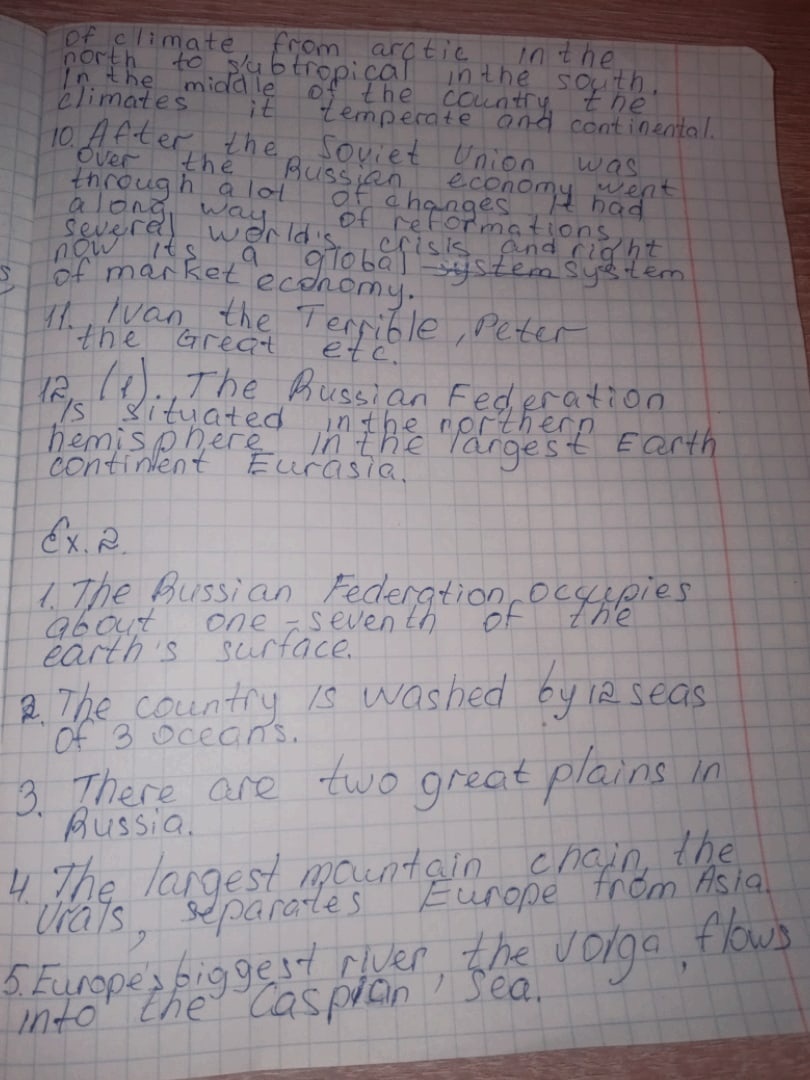 of climate from arctic in the
north to subtropical in the south.
In the middle of the country the
climates it temperate and continental.
10. After the Soviet Union was
over the Russian economy went
through a lot of changes It had
a long way of reformations,
several world's crisis and right
now its a global system system
of market economy.
11. Ivan the Terrible, Peter
the Great etc.
12 (1). The Russian Federation
is situated in the northern
hemisphere in the largest Earth
continent Eurasia.
Ex. 2.
1. The Russian Federation occupies
about one-seventh of the
earth's surface.
2. The country is washed by 12 seas
of 3 oceans.
3. There are two great plains in
Russia.
4. The largest mountain chain, the
Urals, separates Europe from Asia.
5. Europe's biggest river, the Volga, flows
into the Caspian Sea.